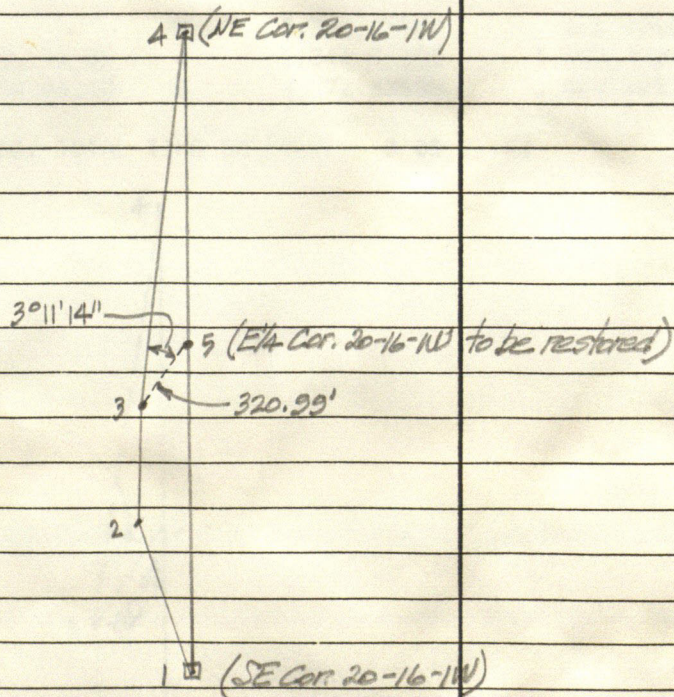 4 (NE Cor. 20-16-1W)
3°11'14"
5 (E1/4 Cor. 20-16-1W to be restored)
3
320.99'
2
1 (SE Cor. 20-16-1W)